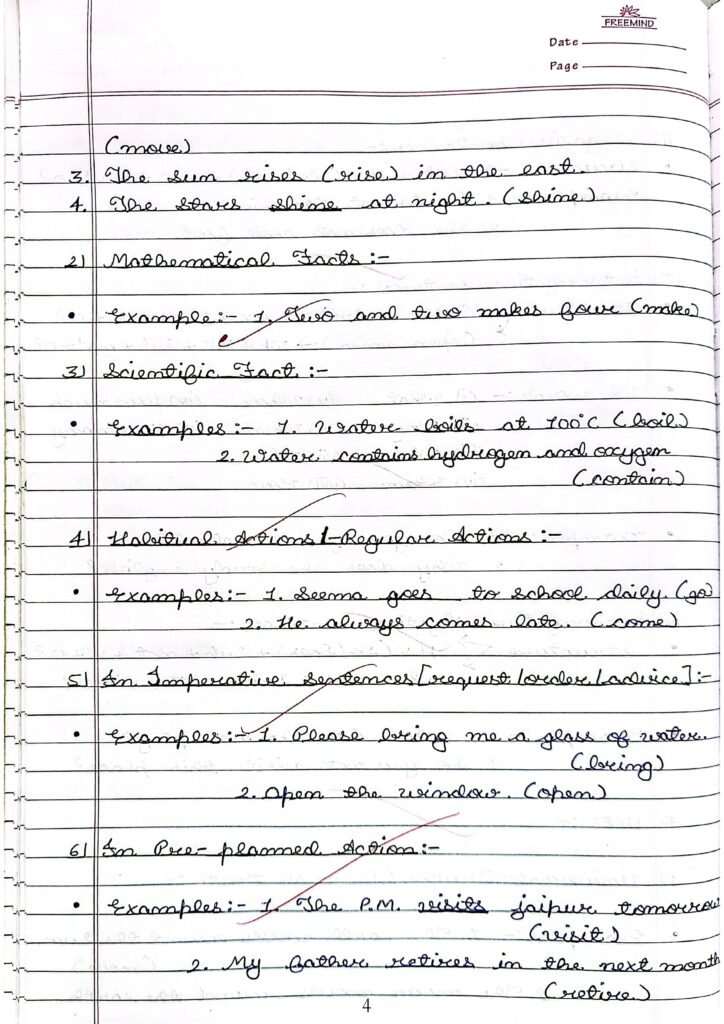 FREEMIND
Date
Page
(move)
3. The sun rises (rise) in the east.
4. The stars shine at night. (shine)
2) Mathematical Facts :-
• Example:- 1. Two and two makes four (make)
3) Scientific Fact :-
• Examples :- 1. Water boils at 100°C (boil)
2. Water contains hydrogen and oxygen
(contain)
4) Habitual Actions/-Regular Actions :-
• Examples:- 1. Seema goes to school daily. (go)
2. He always comes late. (come)
5) In Imperative sentences [request/order/advice]:-
• Examples:- 1. Please bring me a glass of water.
(bring)
2. Open the window. (open)
6) In Pre-planned Action:-
• Examples:- 1. The P.M. visits jaipur tomorrow
(visit)
2. My father retires in the next month
(retire)
4